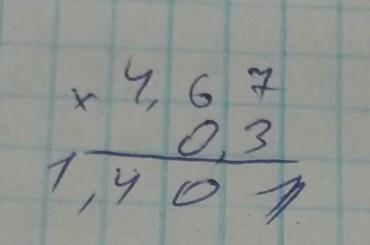 × 4,67
0,3
1,401